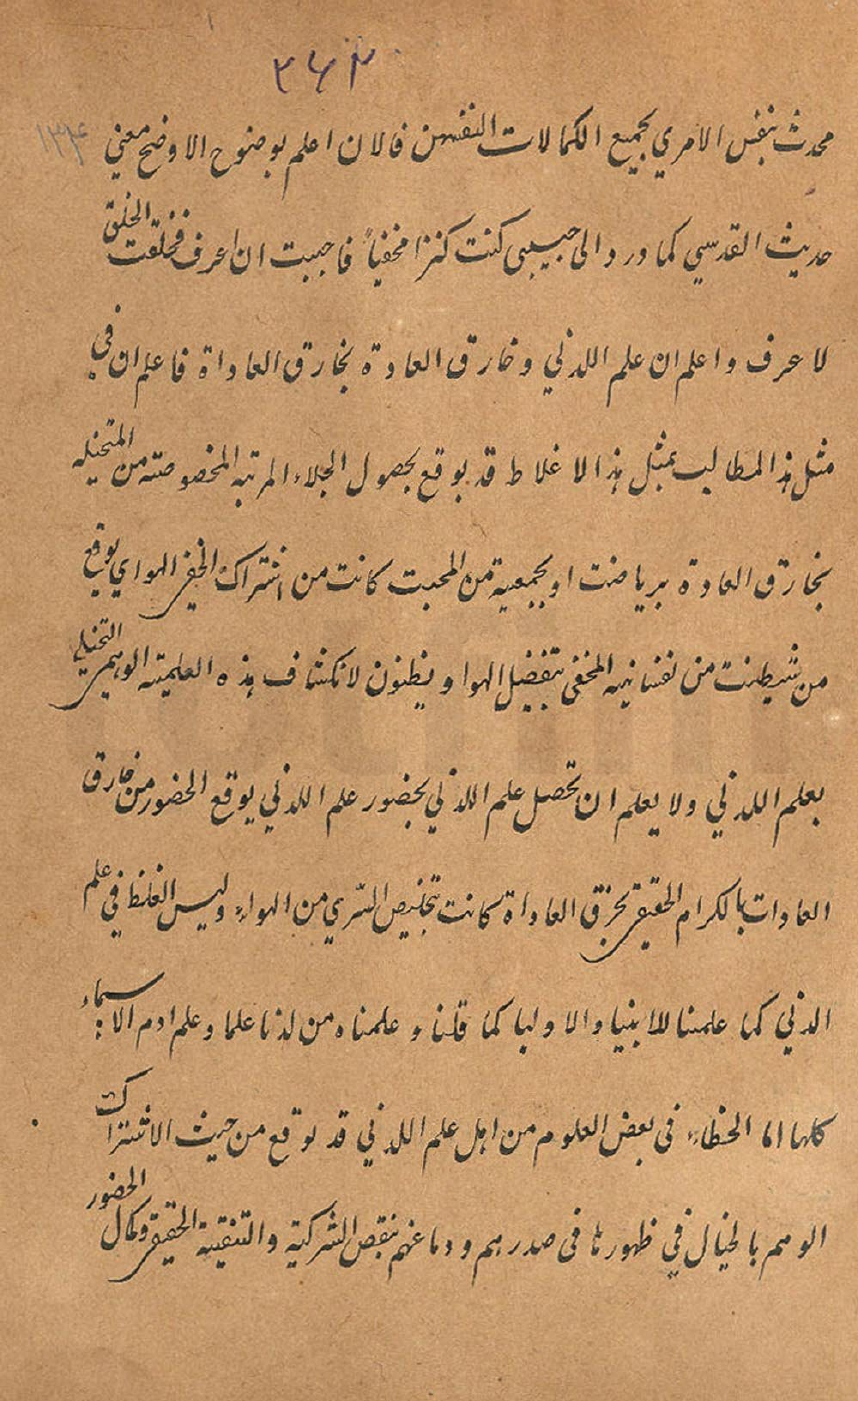 ٣٤٢
١٣٤
محدث بنفس الامري بجميع الكمالات النفسهن فالان اعلم بوضوح الاوضح معني
حديث القدسي كما ورد الى حبيبى كنت كنزا مخفياً فاحببت ان اعرف فخلقت الخلق
لا عرف واعلم ان علم اللدني وخارق العادة بخارق العاداة فاعلم ان في
مثل هذا المطالب بمثل هذا الاغلاط قد يوقع بحصول الجلاء المرتبه المخصوصته من المتخيله
بخارق العادة برياضت او بجمعية من المحبت كانت من اشتراك الخفى الهواي يوقع
من شيطنت من نفسانيه المخفى بتفضيل الهوا و يظنون لانكشاف هذه العلميته الوهمى التخيلي
بعلم اللدني ولا يعلم ان تحصل علم اللدني بحضور علم اللدني يوقع الحضور من خارق
العادات بالكرام الحقيقى بخرق العاداة كانت بتخليص السري من الهواء وليس الغلط في علم
الدني كما علمنا للانبيا والاوليا كما قلنا و علمناه من لدنا علما و علم ادم الاسماء
كلها اما الخطاء فى بعض العلوم من اهل علم اللدني قد يوقع من حيث الاشتراك
الوهم بالخيال في ظهورها فى صدرهم ودماغهم بنقص الشركية والتنقية الحقيقى وكمال الحضور